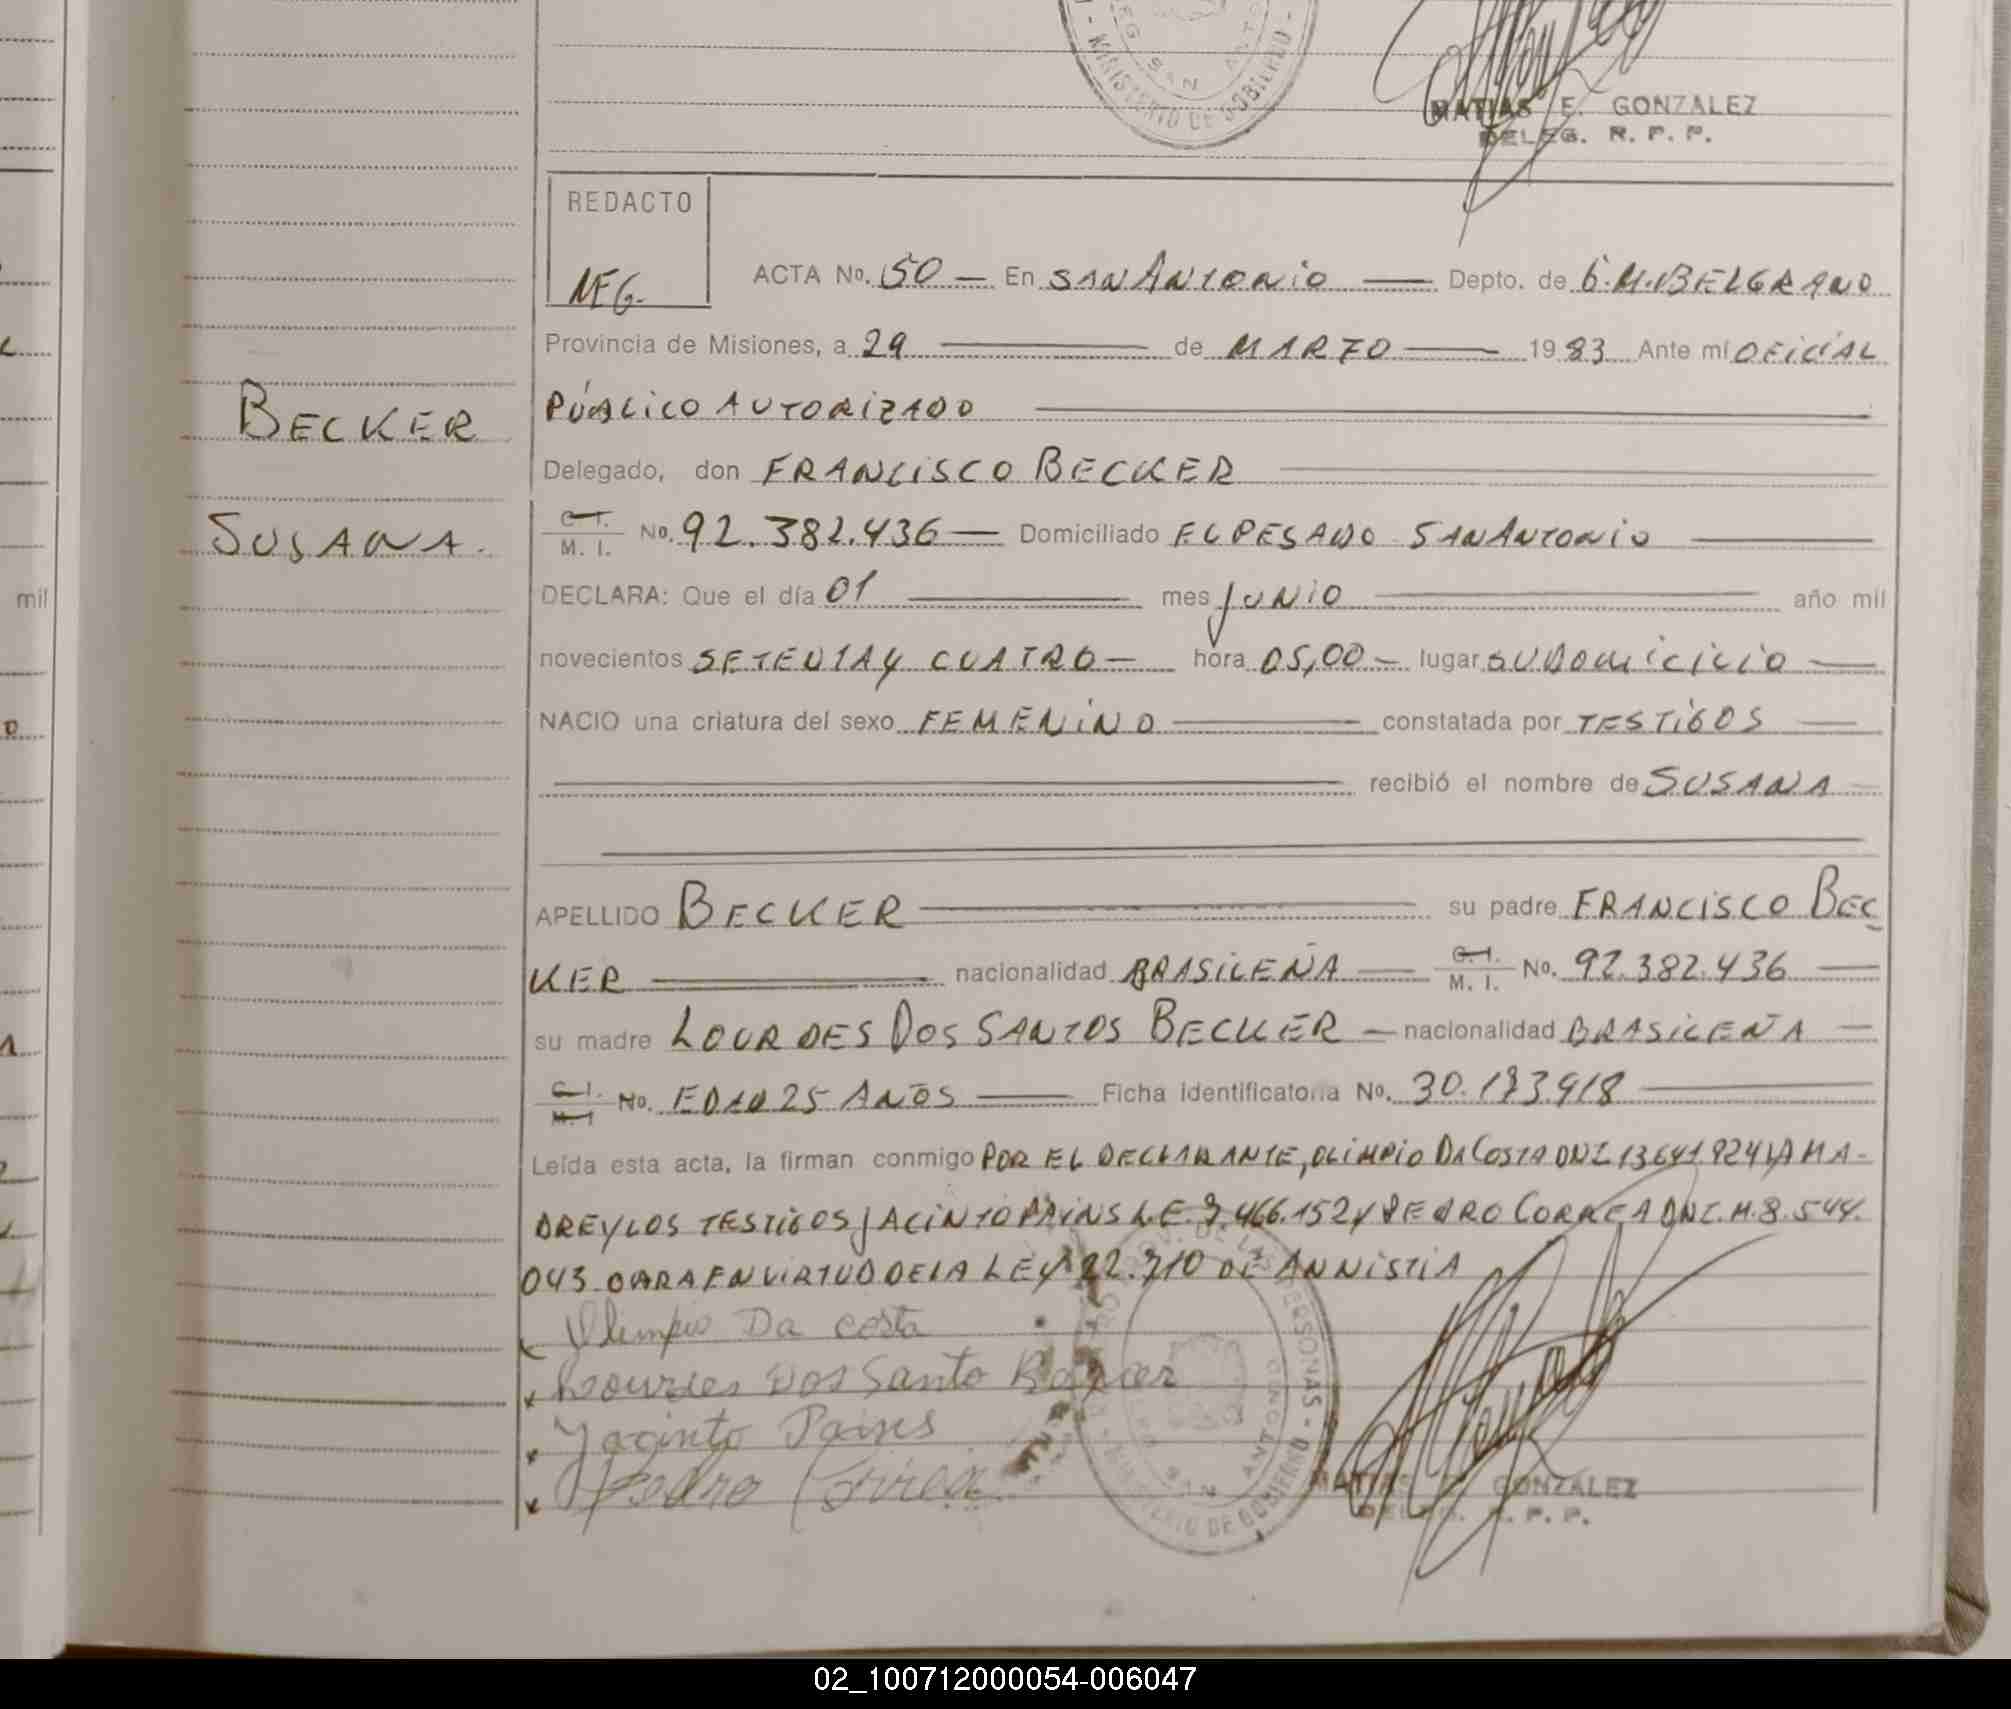 MINISTERIO DE GOBIERNO
SAN ANTO
MATIAS E. GONZALEZ
DELEG. R. P. P.
REDACTO
MEG.
ACTA No. 50 — En SAN ANTONIO — Depto. de G. M. BELGRANO
Provincia de Misiones, a 29 — de MARZO — 1983 Ante mí OFICIAL
PÚBLICO AUTORIZADO
BECKER
Delegado, don FRANCISCO BECKER
SUSANA.
C. I.
M. I. No. 92.382.436 — Domiciliado EL PESADO SAN ANTONIO
DECLARA: Que el día 01 — mes JUNIO — año mil
mil
novecientos SETENTA Y CUATRO — hora 05,00 — lugar SU DOMICILIO —
NACIO una criatura del sexo FEMENINO — constatada por TESTIGOS —
recibió el nombre de SUSANA —
APELLIDO BECKER — su padre FRANCISCO BEC
KER — nacionalidad BRASILEÑA — C. I.
M. I. No. 92.382.436 —
su madre LOURDES DOS SANTOS BECKER — nacionalidad BRASILEÑA —
C. I.
M. I. No. EDAD 25 AÑOS — Ficha identificatoria No. 30.193.918 —
Leída esta acta, la firman conmigo POR EL DECLARANTE, OLIMPIO DA COSTA DNI 13641924 LA MA-
DRE Y LOS TESTIGOS JACINTO PAINS L.E. 7.466.152 Y PEDRO CORREA DNI. M. 8.544.
043 PARA EN VIRTUD DE LA LEY 22.710 DE AMNISTIA
Olimpio Da costa
Lourdes Dos Santo Becker
Jacinto Pains
Pedro Correa
PROV. DE LAS PERSONAS - MINISTERIO DE GOBIERNO
SAN ANTONIO
MATIAS E. GONZALEZ
DELEG. R. P. P.
02_100712000054-006047